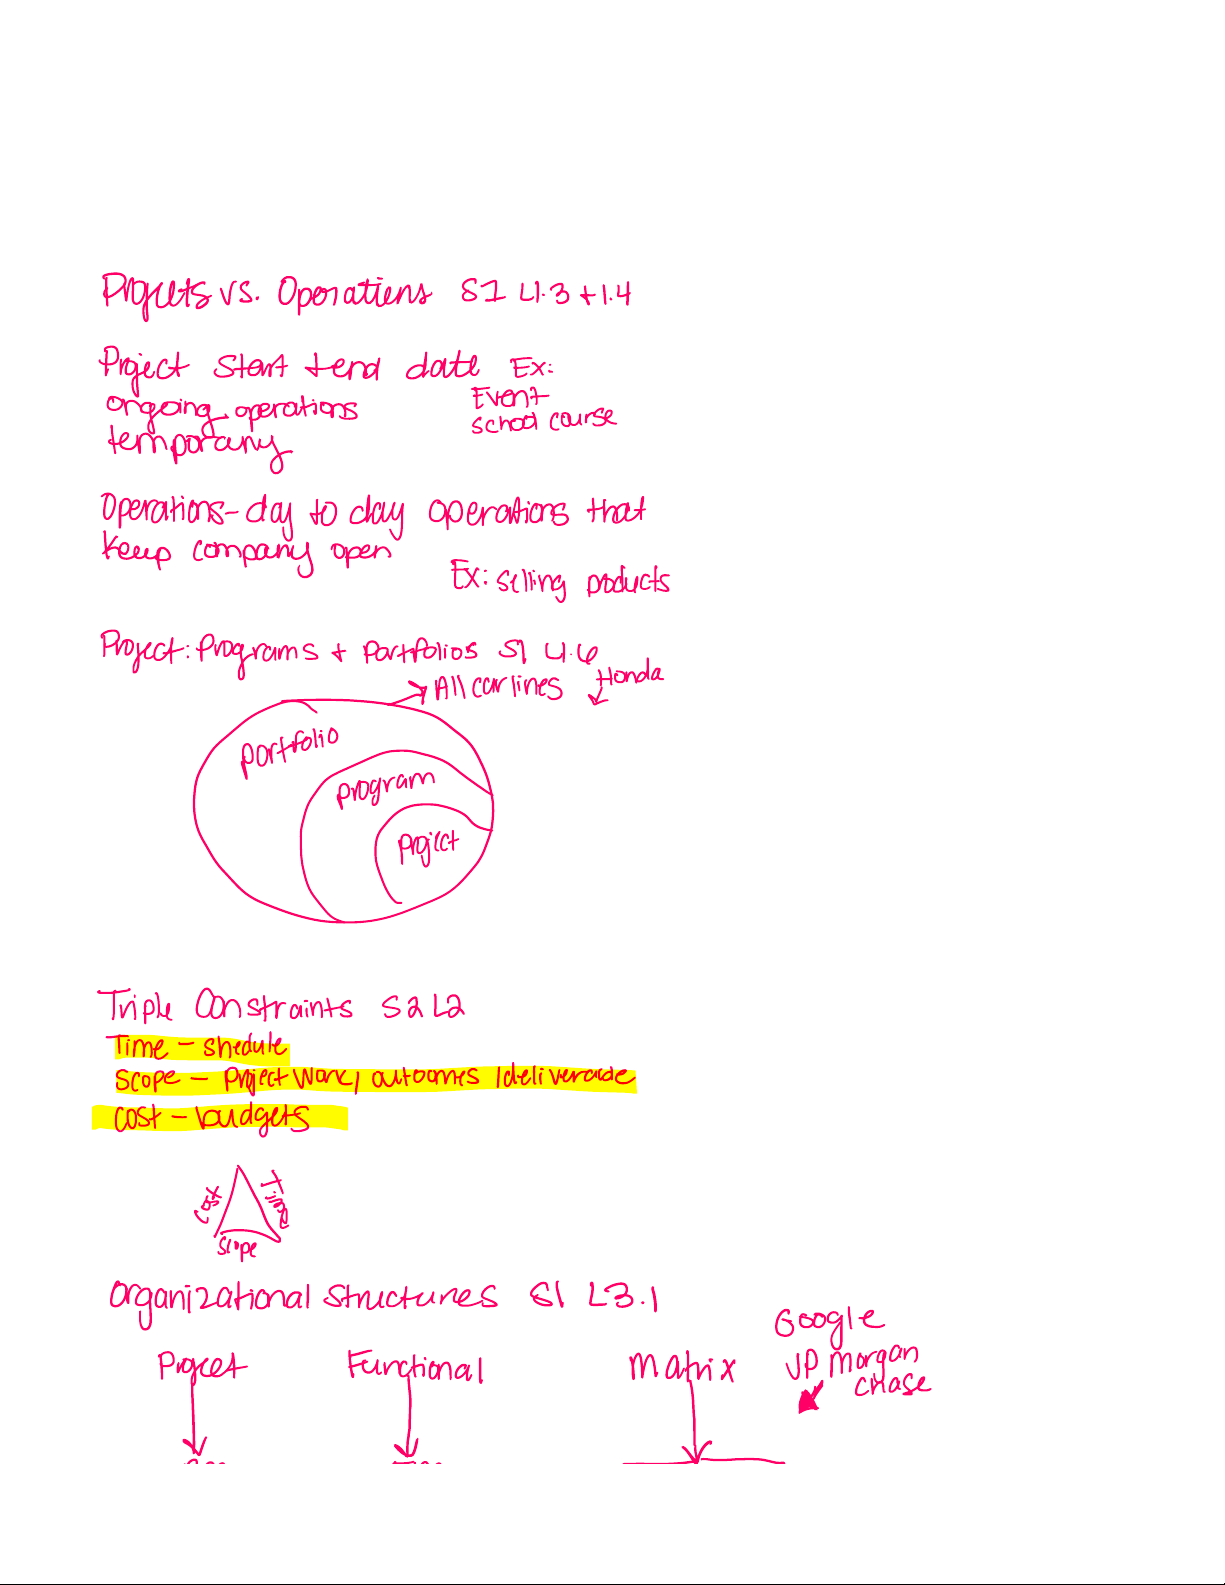 Projects vs. Operations S1 L1.3 + 1.4
Project start + end date Ex:
ongoing operations Event
temporany school course
Operations - day to day operations that
keep company open
Ex: selling products
Project: Programs + Portfolios S1 L1.6
All car lines Honda
portfolio
program
project
Triple Constraints S2 L2
Time - shedule
Scope - Project Work, outcomes / deliverade
Cost - budgets
Cost Time
Scope
Organizational Structures S1 L3.1
Google
Project Functional Matrix JP Morgan
chase